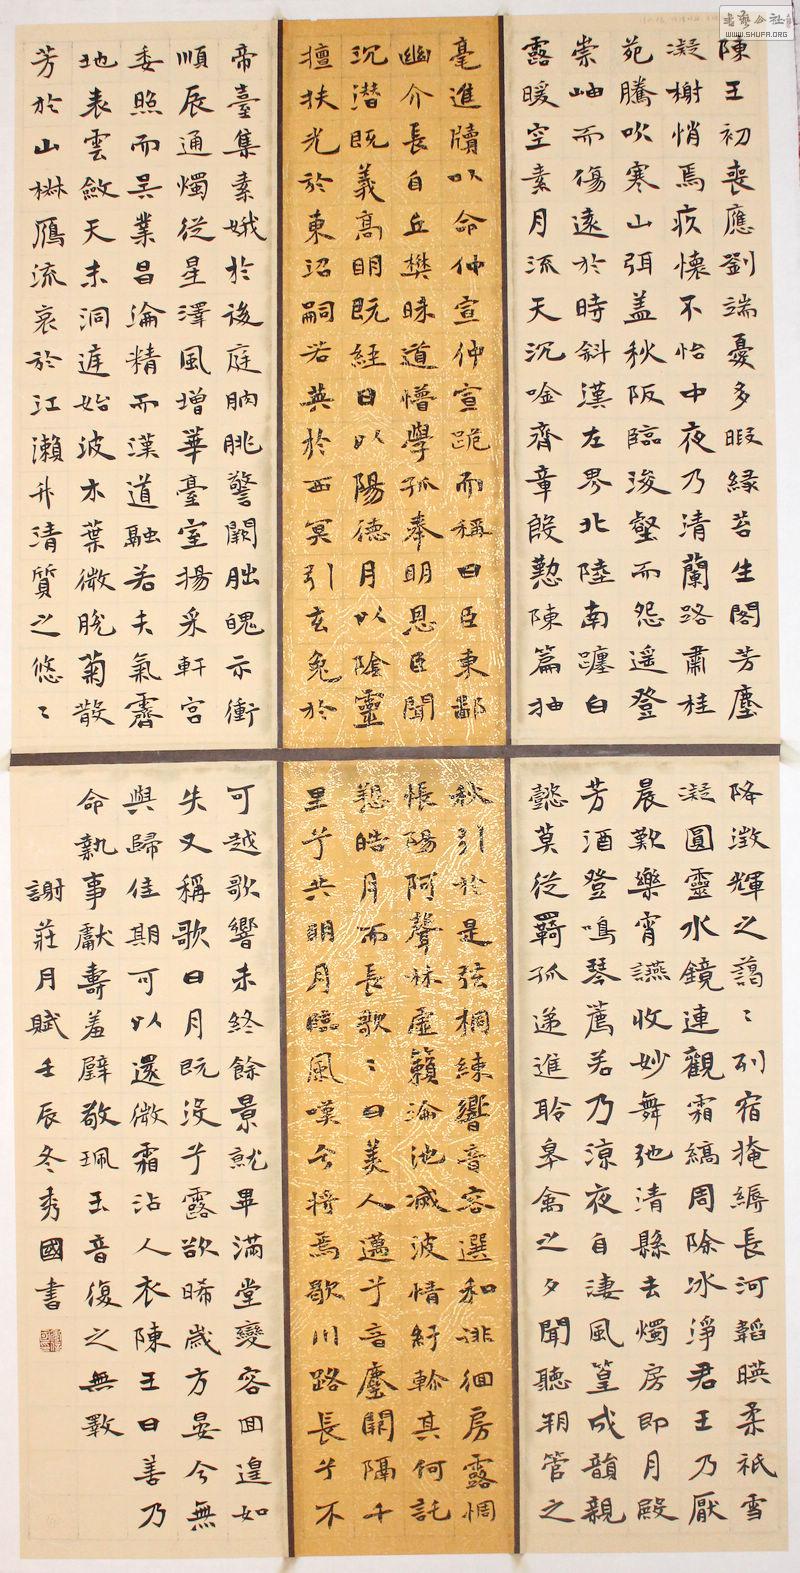 陳王初喪應劉端憂多暇緣苔生閣芳塵
凝榭悄焉疚懷不怡中夜乃清蘭路肅桂
苑騰吹寒山弭蓋秋阪臨浚壑而怨遥登
崇岫而傷遠於時斜漢左界北陸南躔白
露暖空素月流天沉唫齊章殷懃陳篇抽
毫進牘以命仲宣仲宣跪而稱曰臣東鄙
幽介長自丘樊昧道懵學孤奉明恩臣聞
沉潛既義高明既經日以陽德月以陰靈
擅扶光於東沼嗣若英於西冥引玄兔於
帝臺集素娥於後庭朒脁警闕朏魄示衝
順辰通燭從星澤風增華臺室揚采軒宮
委照而吳業昌淪精而漢道融若夫氣霽
地表雲斂天末洞庭始波木葉微脫菊散
芳於山椒雁流哀於江瀨升清質之悠〻
降澂輝之藹〻列宿掩縟長河韜暎柔祇雪
凝圓靈水鏡連觀霜縞周除冰淨君王乃厭
晨歡樂宵讌收妙舞弛清縣去燭房即月殿
芳酒登鳴琴薦若乃涼夜自淒風篁成韻親
懿莫從羇孤遞進聆皋禽之夕聞聽朔管之
秋引於是弦桐練響音容選和徘徊房露惆
悵陽阿聲林虛籟淪池滅波情紆軫其何託
愬皓月而長歌〻曰美人邁兮音塵闕隔千
里兮共明月臨風嘆兮將焉歇川路長兮不
可越歌響未終餘景就畢滿堂變容回遑如
失又稱歌曰月既没兮露欲晞歲方晏兮無
與歸佳期可以還微霜沾人衣陳王曰善乃
命執事獻壽羞璧敬珮玉音復之無斁
謝莊月賦壬辰冬秀國書
書藝公社
WWW.SHUFA.ORG